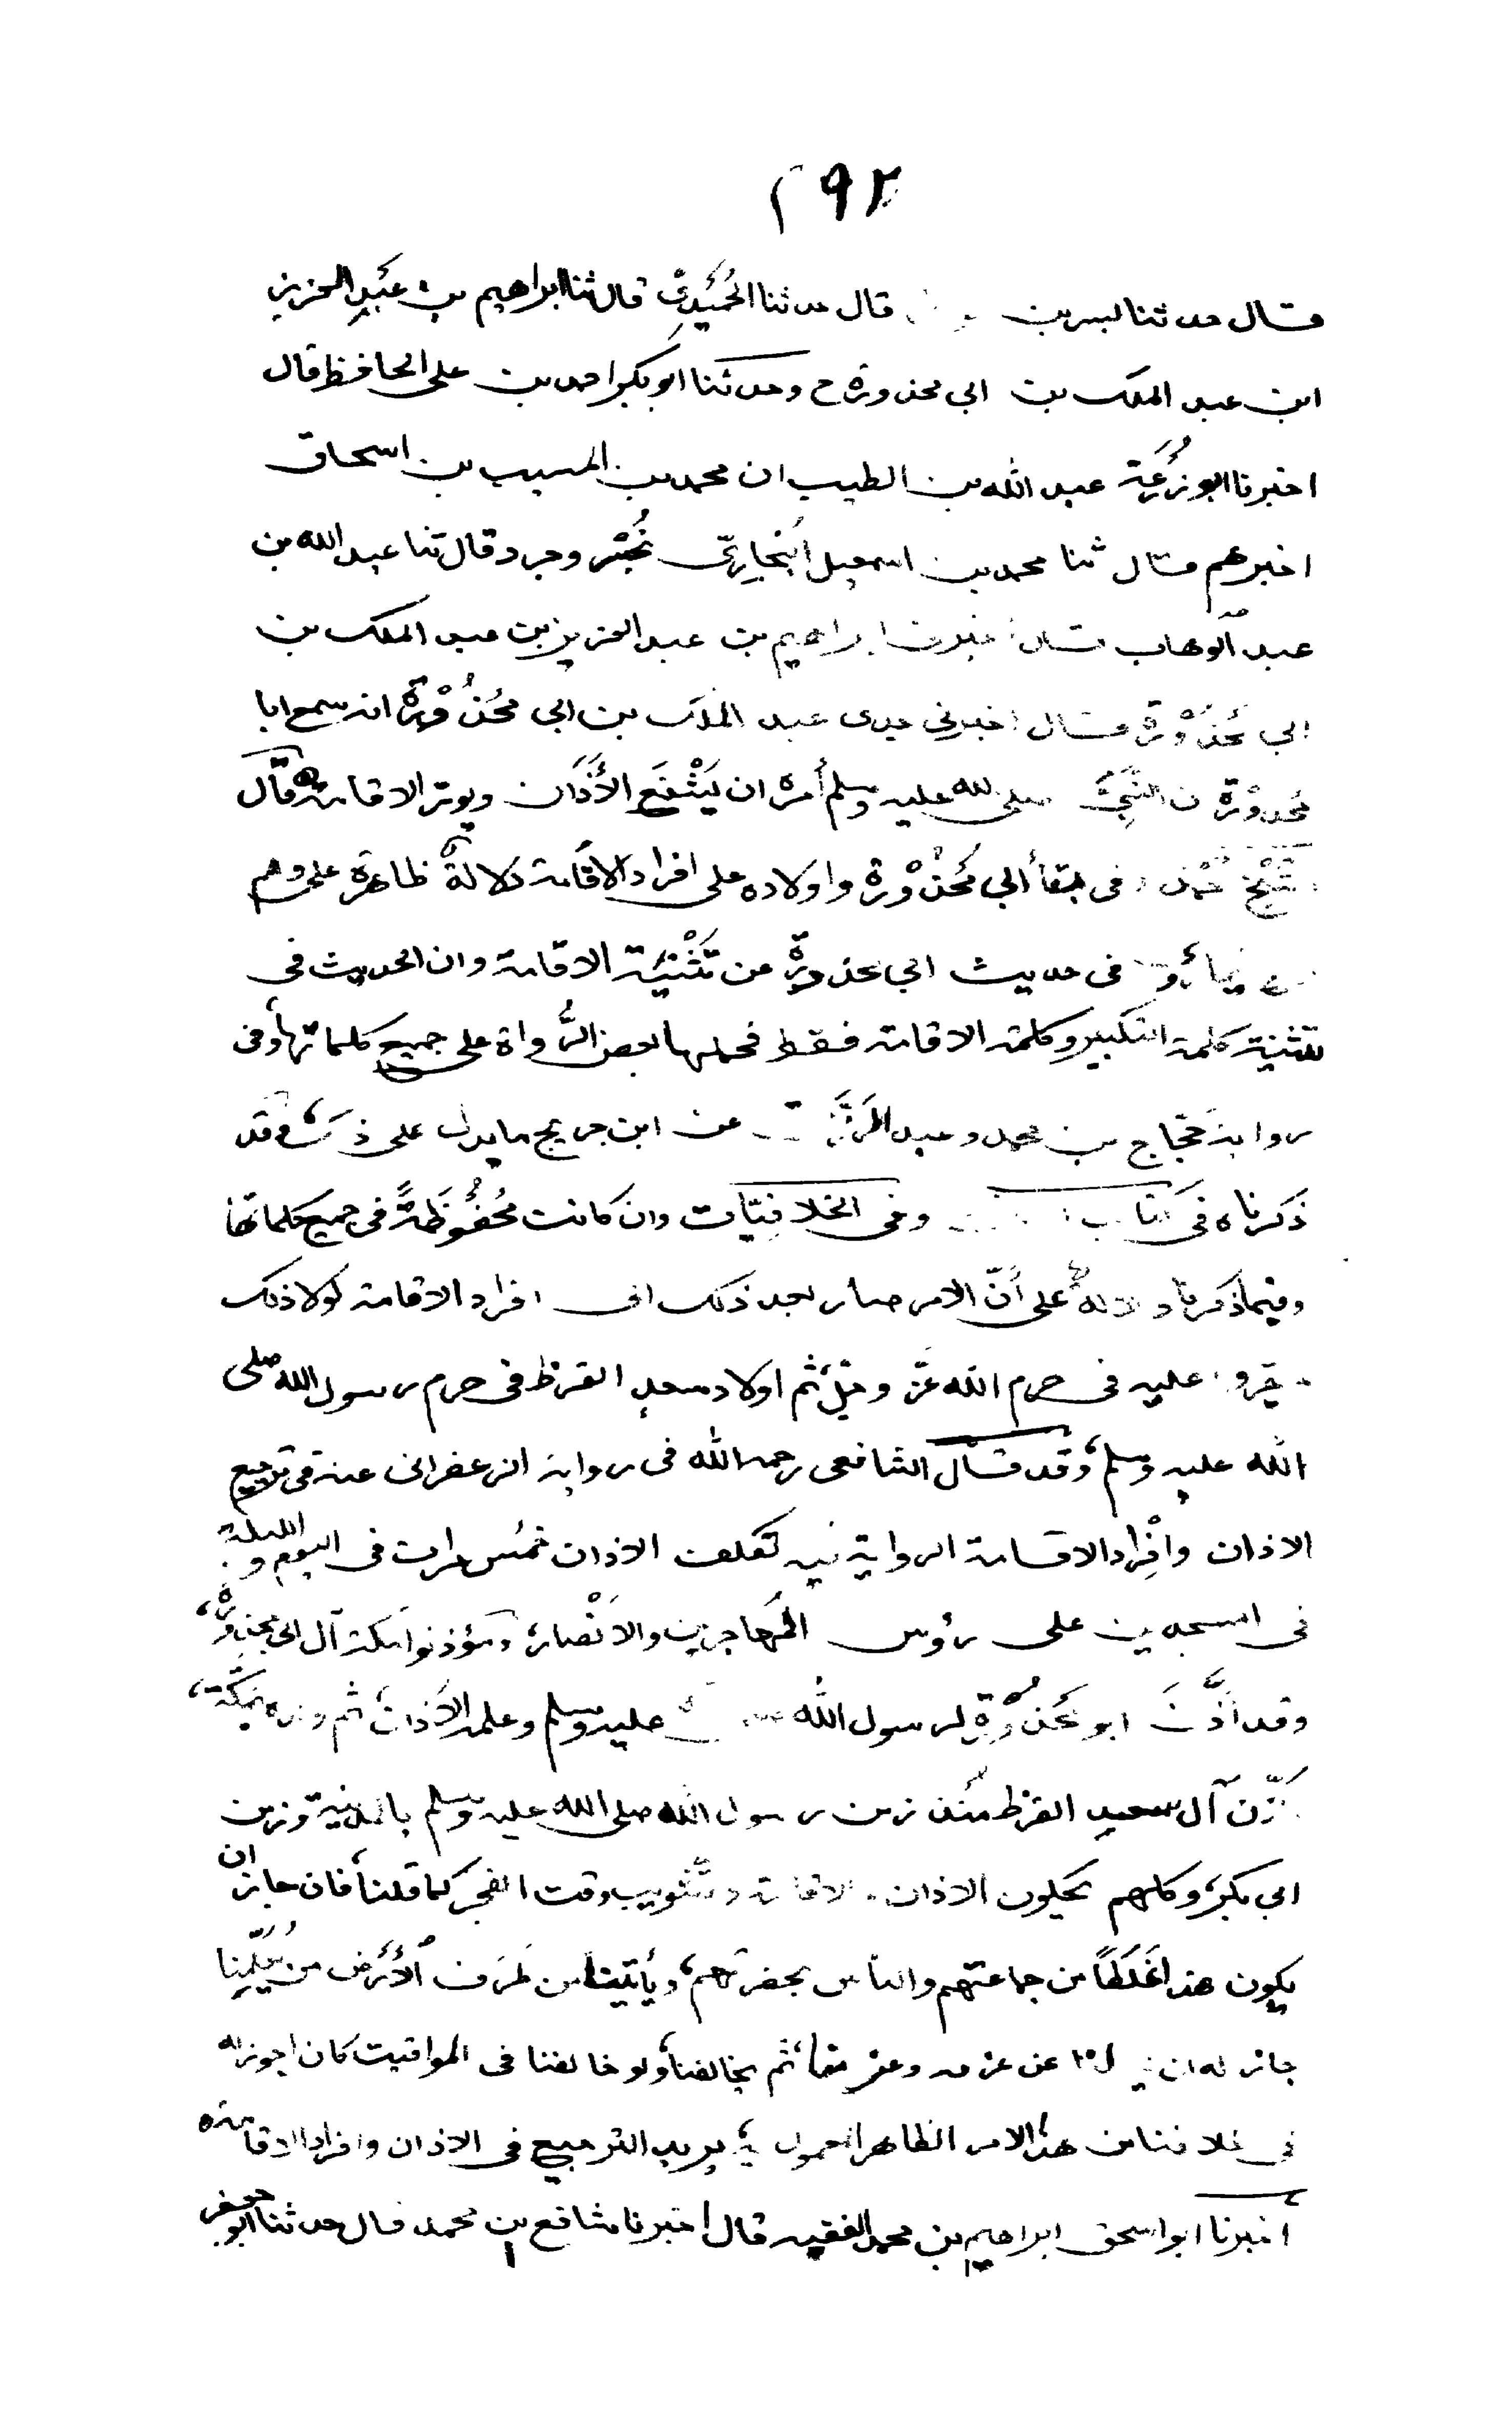 ١٩٢
قال حدثنا بسر بن قال حدثنا الحُمَيْدِيّ قال ثنا ابراهيم بن عَبْدِ العزيز
ابن عبد الملك بن ابي محذورة ح وحدثنا ابو بكر احمد بن على الحافظ قال
اخبرنا ابو زُرْعَة عبد الله بن الطيب ان محمد بن المسيب بن اسحاق
اخبرهم قال ثنا محمد بن اسمعيل البُخارِيّ قال ثنا عبد الله بن
عبد الوهاب قال اخبرنا ابراهيم بن عبد العزيز بن عبد الملك بن
ابي مَحْذُوْرة قال اخبرني جدى عبد الملك بن ابي مَحْذُوْرَة انه سمع ابا
مَحْذُوْرَة ان النَّبِيَّ صلى الله عليه وسلم أمره ان يَشْفَعَ الأَذَان ويوتر الاقامة قال
الشَّيْخ أحمد وفى بقأ ابي مَحْذُوْرة واولاده على افراد الاقامة دلالةٌ ظاهرَة على وهم
فى حديث ابي محذورة من تَثْنِيَة الاقامة وان الحديث فى
تثنية كلمة التكبير وكلمة الاقامة فقط فحملها بعض الرُّواة على جميع كلماتها، وفى
رواية حَجّاج بن محمد وعبد الرَّزَّاق عن ابن جريج ما يدل على ذلك، وقد
ذكرناه فى كتاب وفى الخلافِيّات وان كانت مَحْفُوْظَةً فى جميع كلماتها
وفيما ذكرنا دلالةٌ على أَنّ الامر صار بعد ذلك الى افراد الاقامة لولا ذلك
عليه فى حرم الله عزّ وجلّ، ثم اولاد سعدٍ القرظ فى حرم رسول الله صلى
الله عليه وسلم، وقد قال الشافعى رحمه الله فى رواية الزعفرانى عنه فى ترجيع
الاذان وافْراد الاقامة الرواية فيه تكلف الاذان خمس مرات فى اليوم والليلة
فى المسجدين على رؤوس المُهاجرين والانْصار، ومؤذنوا مكة آل ابى محذورة،
وقد أذَّنَ ابو مَحْذُوْرَةِ لرسول الله صلى الله عليه وسلم وعلمه الأَذان، ثم ولده بمَكَّة،
وأَذّن آل سعدٍ القرظ مُنْذ زمن رسول الله صلى الله عليه وسلم بالمدينة وزمن
ابي بكر، وكلهم يحكون الاذان والاقامة والتَّثويب وقت الفجر كما قلنا، فان جاز ان
يكون هذا غَلَطًا من جماعتهم والناس بحضرتهم، ويأتينا من طَرَف الأرْض من يُعَلِّمنا
جاز له ان عن عرفه وعن منا، ثم يخالفنا، ولو خالفنا فى المواقيت كان اجوز له
فى خلافنا من هذا الامر الظاهر المعمول به، يريد الترجيع فى الاذان وافراد الاقامة
اخبرنا ابو اسحق ابراهيم بن محمد الفقيه قال اخبرنا شافع بن محمد قال حدثنا ابو جعفر